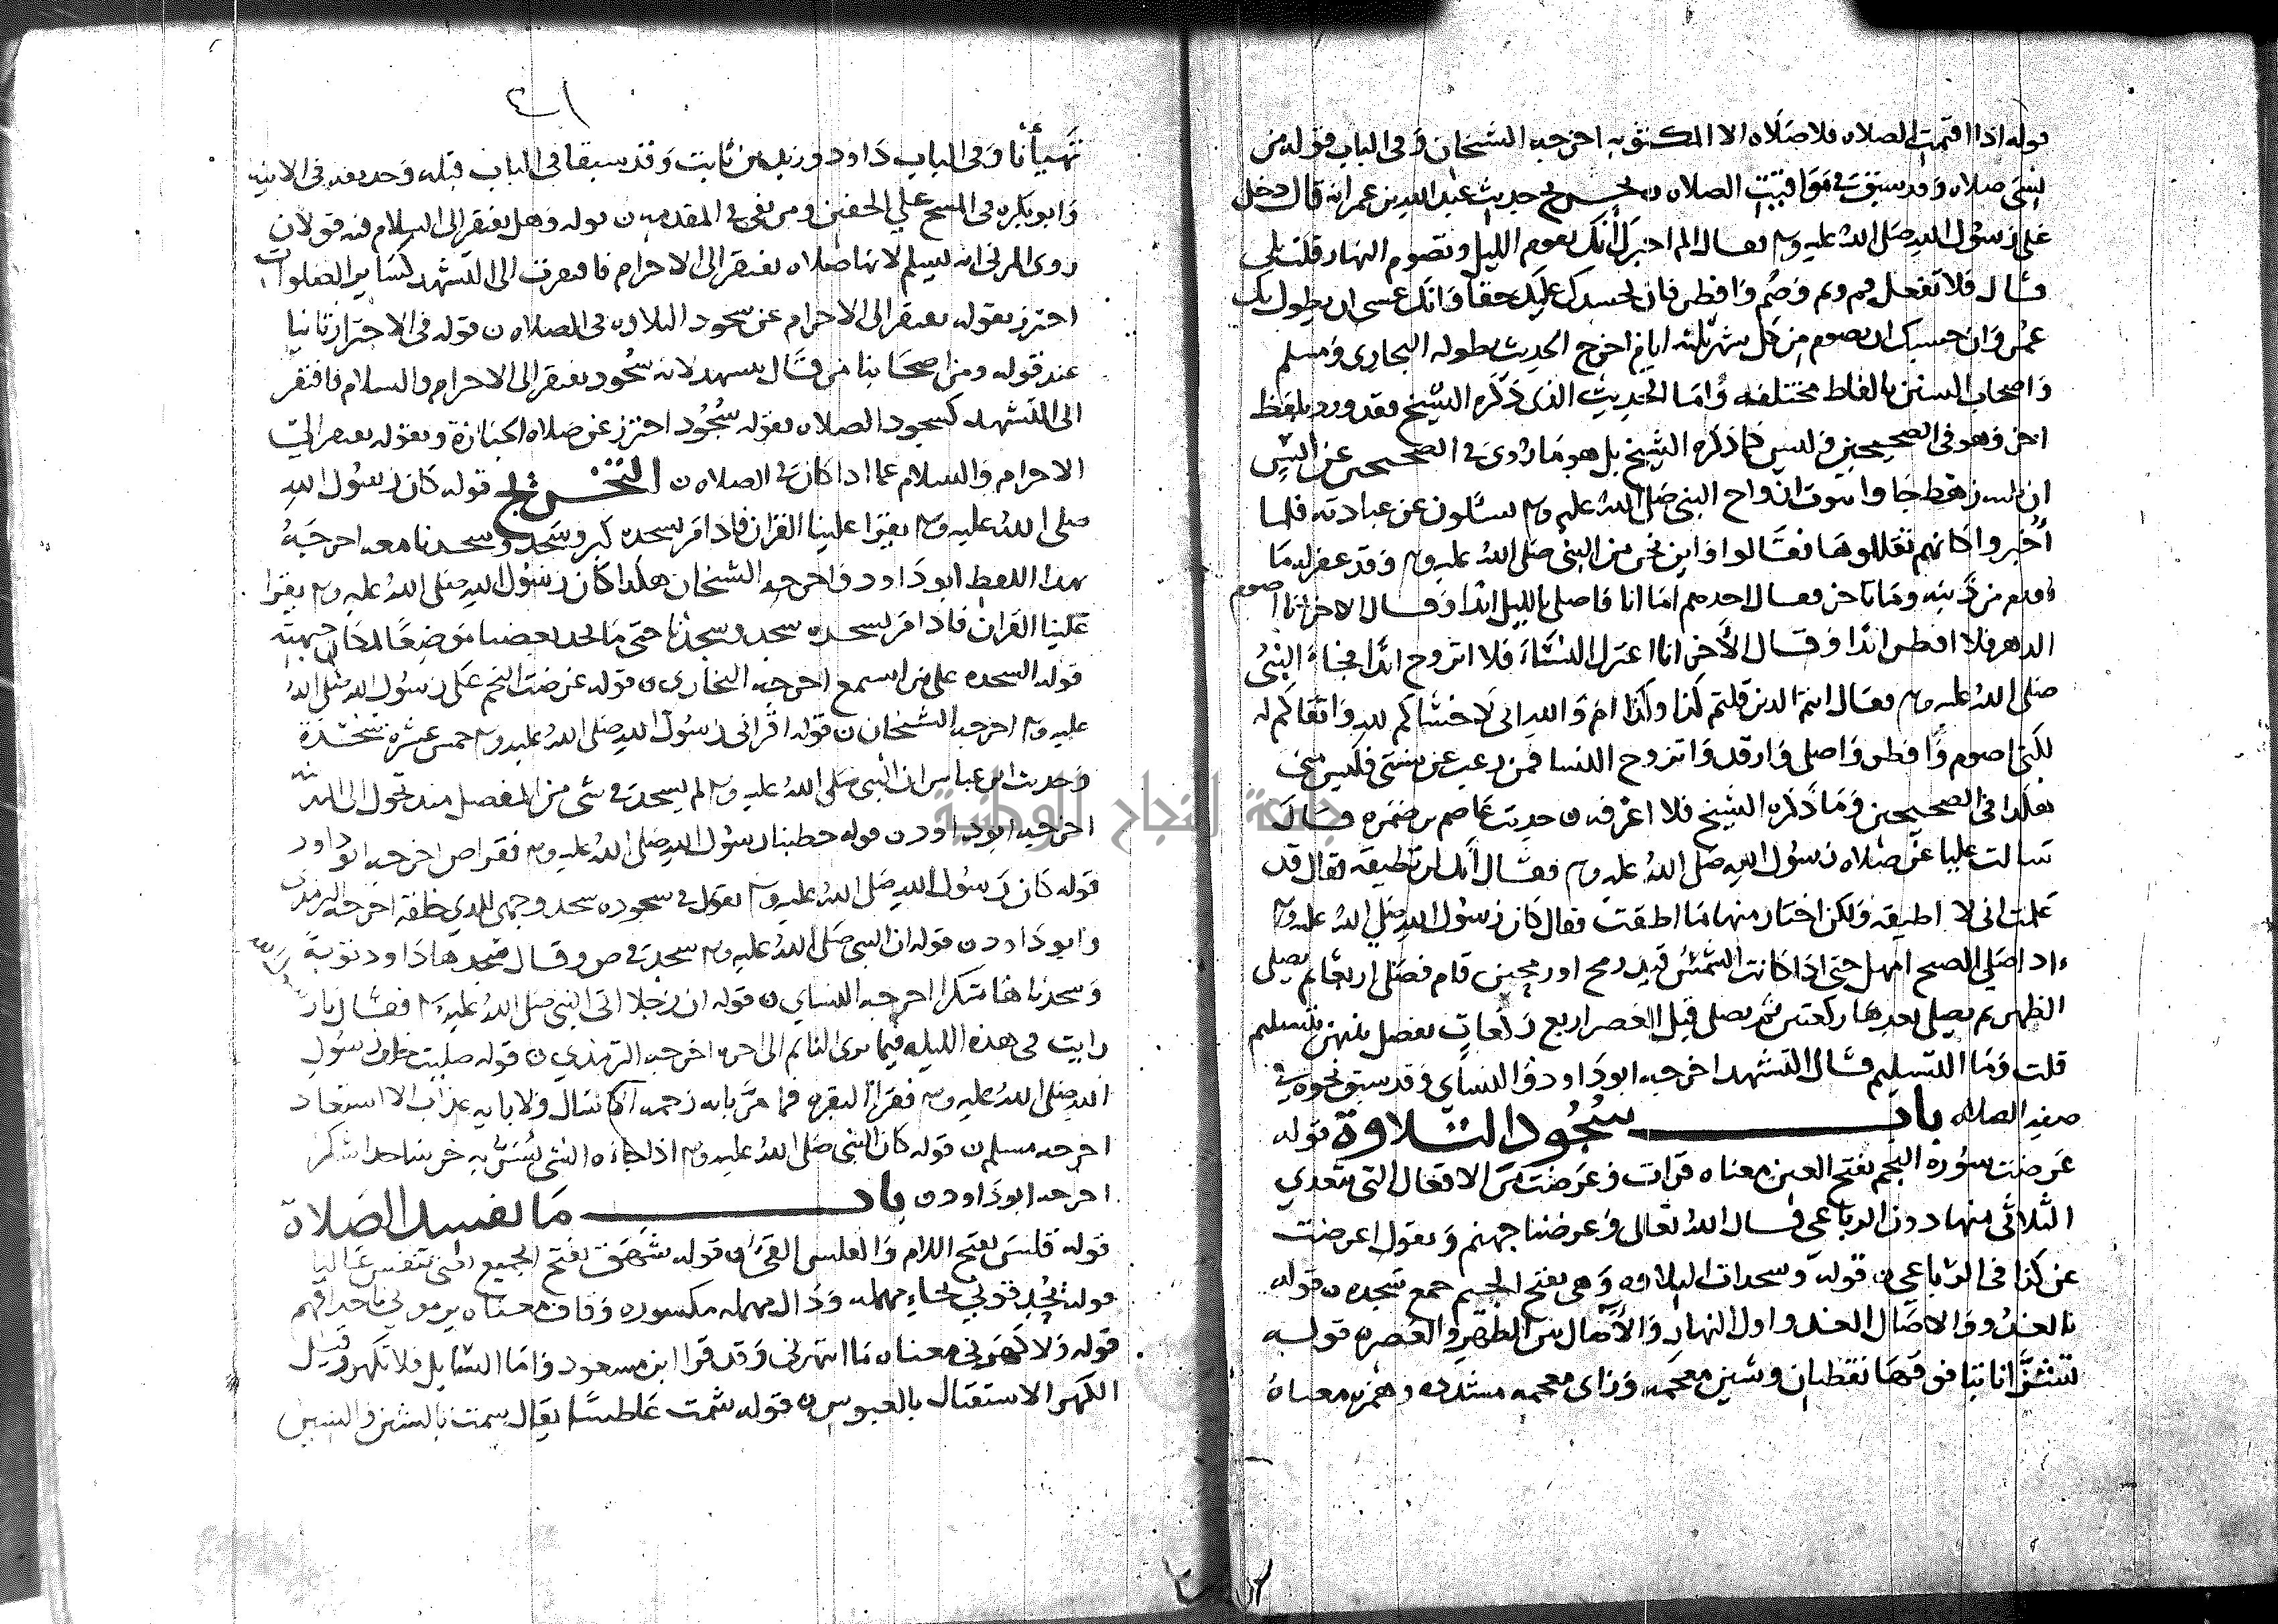 قوله اذا اقيمت الصلاه فلا صلاه الا المكتوبه اخرجه الشيخان وفى الباب قوله من
نسى صلاه وقد سبق فى مواقيت الصلاه تخريج حديث عبد الله بن عمر انه قال دخل
على رسول الله صلى الله عليه وسلم فقال الم اخبر انك تقوم الليل وتصوم النهار قلت بلى
قال فلا تفعل قم ونم وصم وافطر فان لجسدك عليك حقا وانك عسى ان يطول بك
عمر وان حسبك ان تصوم من كل شهر ثلثه ايام اخرج الحديث بطوله البخارى ومسلم
واصحاب السنن بالفاظ مختلفه واما الحديث الذى ذكره الشيخ فقد ورد بلفظ
اخر وهو فى الصحيحين وليس كما ذكره الشيخ بل هو ما روى فى الصحيحين عن انس
ان رهط جاوا بيوت ازواح النبى صلى الله عليه وسلم يسالون عن عبادته فلما
اخبروا كانهم تقالوها فقالوا واين نحن من النبى صلى الله عليه وسلم وقد غفر له ما
تقدم من ذنبه وما تاخر فقال احدهم اما انا فاصلى بالليل ابدا وقال الاخر انا اصوم
الدهر فلا افطر ابدا وقال الأخر انا اعتزل النساء فلا اتزوج ابدا فجاء النبى
صلى الله عليه وسلم فقال انتم الذين قلتم كذا وكذا ام والله انى لاخشاكم لله واتقاكم له
لكنى اصوم وافطر واصلى وارقد واتزوج النسا فمن رغب عن سنتى فليس منى
هكذا فى الصحيحين وما ذكره الشيخ فلا اعرفه ن حديث عاصم بن ضمره قال
سالت عليا عن صلاه رسول الله صلى الله عليه وسلم فقال انك لن تطيقه فقال قد
علمت انى لا اطيقه ولكن اختار منها ما اطقت فقال كان رسول الله صلى الله عليه وسلم
اذا صلى الصبح امهل حتى اذا كانت الشمس قيد رمح او رمحين قام فصلى اربعا ثم يصلى
الظهر ثم يصلى بعدها ركعتين ثم يصلى قبل العصر اربع ركعات يفصل بينهن بتسليم
قلت وما التسليم قال التشهد اخرجه ابو داود والنساى وقد سبق نحوه فى
صفه الصلاه باب سُجُود التلاوة قوله
عرضت سوره النجم بفتح العين معناه قرات وعرضت من الافعال التى يتعدى
الثلاثى منها دون الرباعى قال الله تعالى وعرضنا جهنم ويقول اعرضت
عن كذا فى الرباعى ن قوله وسجدات التلاوه وهى بفتح الجيم جمع سجده ن قوله
بالغدو والاصال الغدو اول النهار والأصال بين الظهر والعصر ن قوله
تشزنا بتا فوقها نقطتان وشين معجمه وزاى معجمه مشدده وهمزه معناه
٤١
تهيأنا وفى الباب داود وزيد بن ثابت وقد سبقا فى الباب قبله وحذيفه فى الانيه
وابو بكره فى المسح على الخفين ومن بقى فى المقدمه ن قوله وهل يفتقر الى السلام فيه قولان
روى المزنى انه يسلم لانها صلاه تفتقر الى الاحرام فافتقرت الى التشهد كساير الصلوات
احترز بقوله يفتقر الى الاحرام عن سجود التلاوه فى الصلاه ن قوله فى الاحتراز ثانيا
عند قوله ومن اصحابنا من قال يتشهد لانه سجود يفتقر الى الاحرام والسلام فافتقر
الى التشهد كسجود الصلاه بقوله سُجُود احترز عن صلاه الجنازة وبقوله يفتقر الى
الاحرام والسلام عما اذا كان فى الصلاه ن التخريج قوله كان رسول الله
صلى الله عليه وسلم يقرا علينا القران فاذا مر بسجده كبر وسجد وسجدنا معه اخرجه
بهذا اللفظ ابو داود واخرجه الشيخان هكذا كان رسول الله صلى الله عليه وسلم يقرا
علينا القران فاذا مر بسجده سجد وسجدنا حتى ما يجد بعضنا موضعا لمكان جبهته
قوله السجده على من استمع اخرجه البخارى ن قوله عرضت النجم على رسول الله صلى الله
عليه وسلم اخرجه الشيخان ن قوله اقرانى رسول الله صلى الله عليه وسلم خمس عشره سجدة
وحديث ابن عباس ان النبى صلى الله عليه وسلم لم يسجد فى شى من المفصل منذ تحول الى المدينه
اخرجه ابو داود ن قوله خطبنا رسول الله صلى الله عليه وسلم فقرا ص اخرجه ابو داود
قوله كان رسول الله صلى الله عليه وسلم يقول فى سجوده سجد وجهى للذى خلقه اخرجه الترمذى
وابو داود ن قوله ان النبى صلى الله عليه وسلم سجد فى ص وقال سجدها داود توبة
وسجدناها شكرا اخرجه النساى ن قوله ان رجلا اتى النبى صلى الله عليه وسلم فقال
رايت فى هذه الليله فيما يرى النايم الى اخره اخرجه الترمذى ن قوله صليت خلف رسول
الله صلى الله عليه وسلم فقرأ البقره فما مر بايه رحمه الا سال ولا بايه عذاب الا استعاذ
اخرجه مسلم ن قوله كان النبى صلى الله عليه وسلم اذا جاءه الشى يُسَرّ به خر ساجدا شكر
اخرجه ابو داود ن باب ما يفسد الصلاة
قوله قلس بفتح اللام والقلس القى ن قوله شهق بفتح الجميع اى تنفس عاليا
قوله فحدقونى بحاء مهمله ودال مهمله مكسوره وقاف معناه يرمونى باحداقهم
قوله ولا كهرنى معناه ما انتهرنى وقد قرا ابن مسعود واما السايل فلا تكهر وقيل
الكهر الاستقبال بالعبوس ن قوله شمت عاطسا يقال سمت بالشين والسين
جامعة النجاح الوطنية